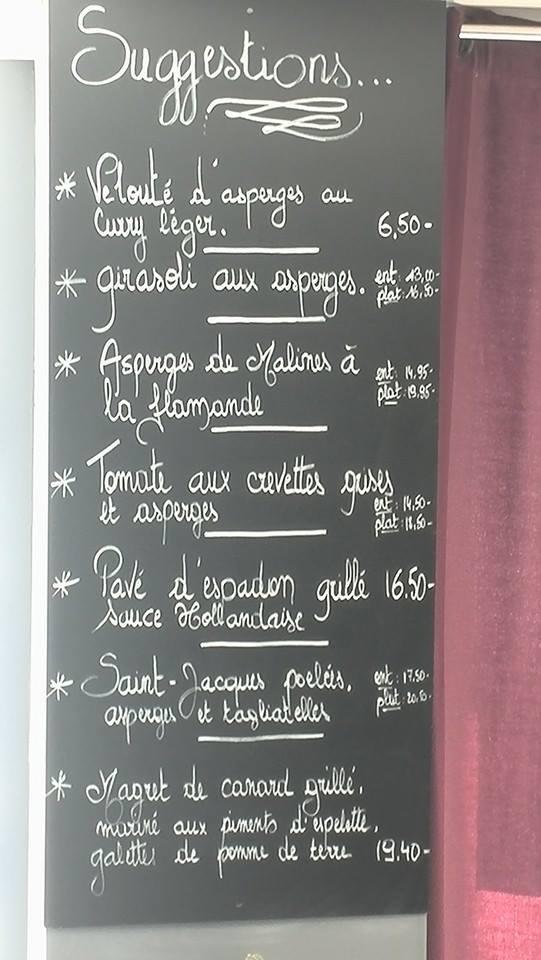 Suggestions...
* Velouté d'asperges au
Curry léger. 6,50-
* girasoli aux asperges. ent: 13,00-
plat: 16,50-
* Asperges de Malines à ent: 14,95-
la flamande plat: 19,95-
* Tomate aux crevettes grises
et asperges ent: 14,50-
plat: 18,50-
* Pavé d'espadon grillé 16.50-
sauce Hollandaise
* Saint-Jacques poelées, ent: 17.50-
asperges et tagliatelles plat: 20.50-
* Magret de canard grillé,
mariné aux piments d'espelette,
galettes de pomme de terre 19.40-